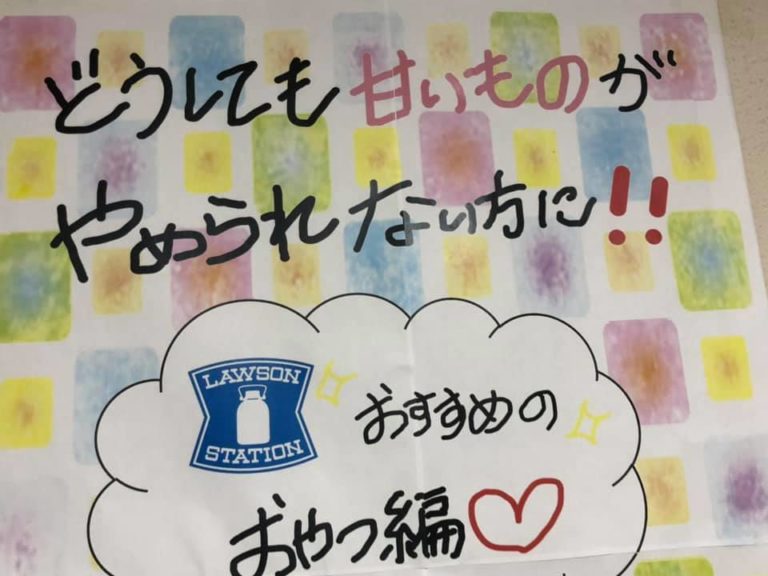 どうしても甘いものが
やめられない方に!!
LAWSON
STATION
おすすめの
おやつ編♡